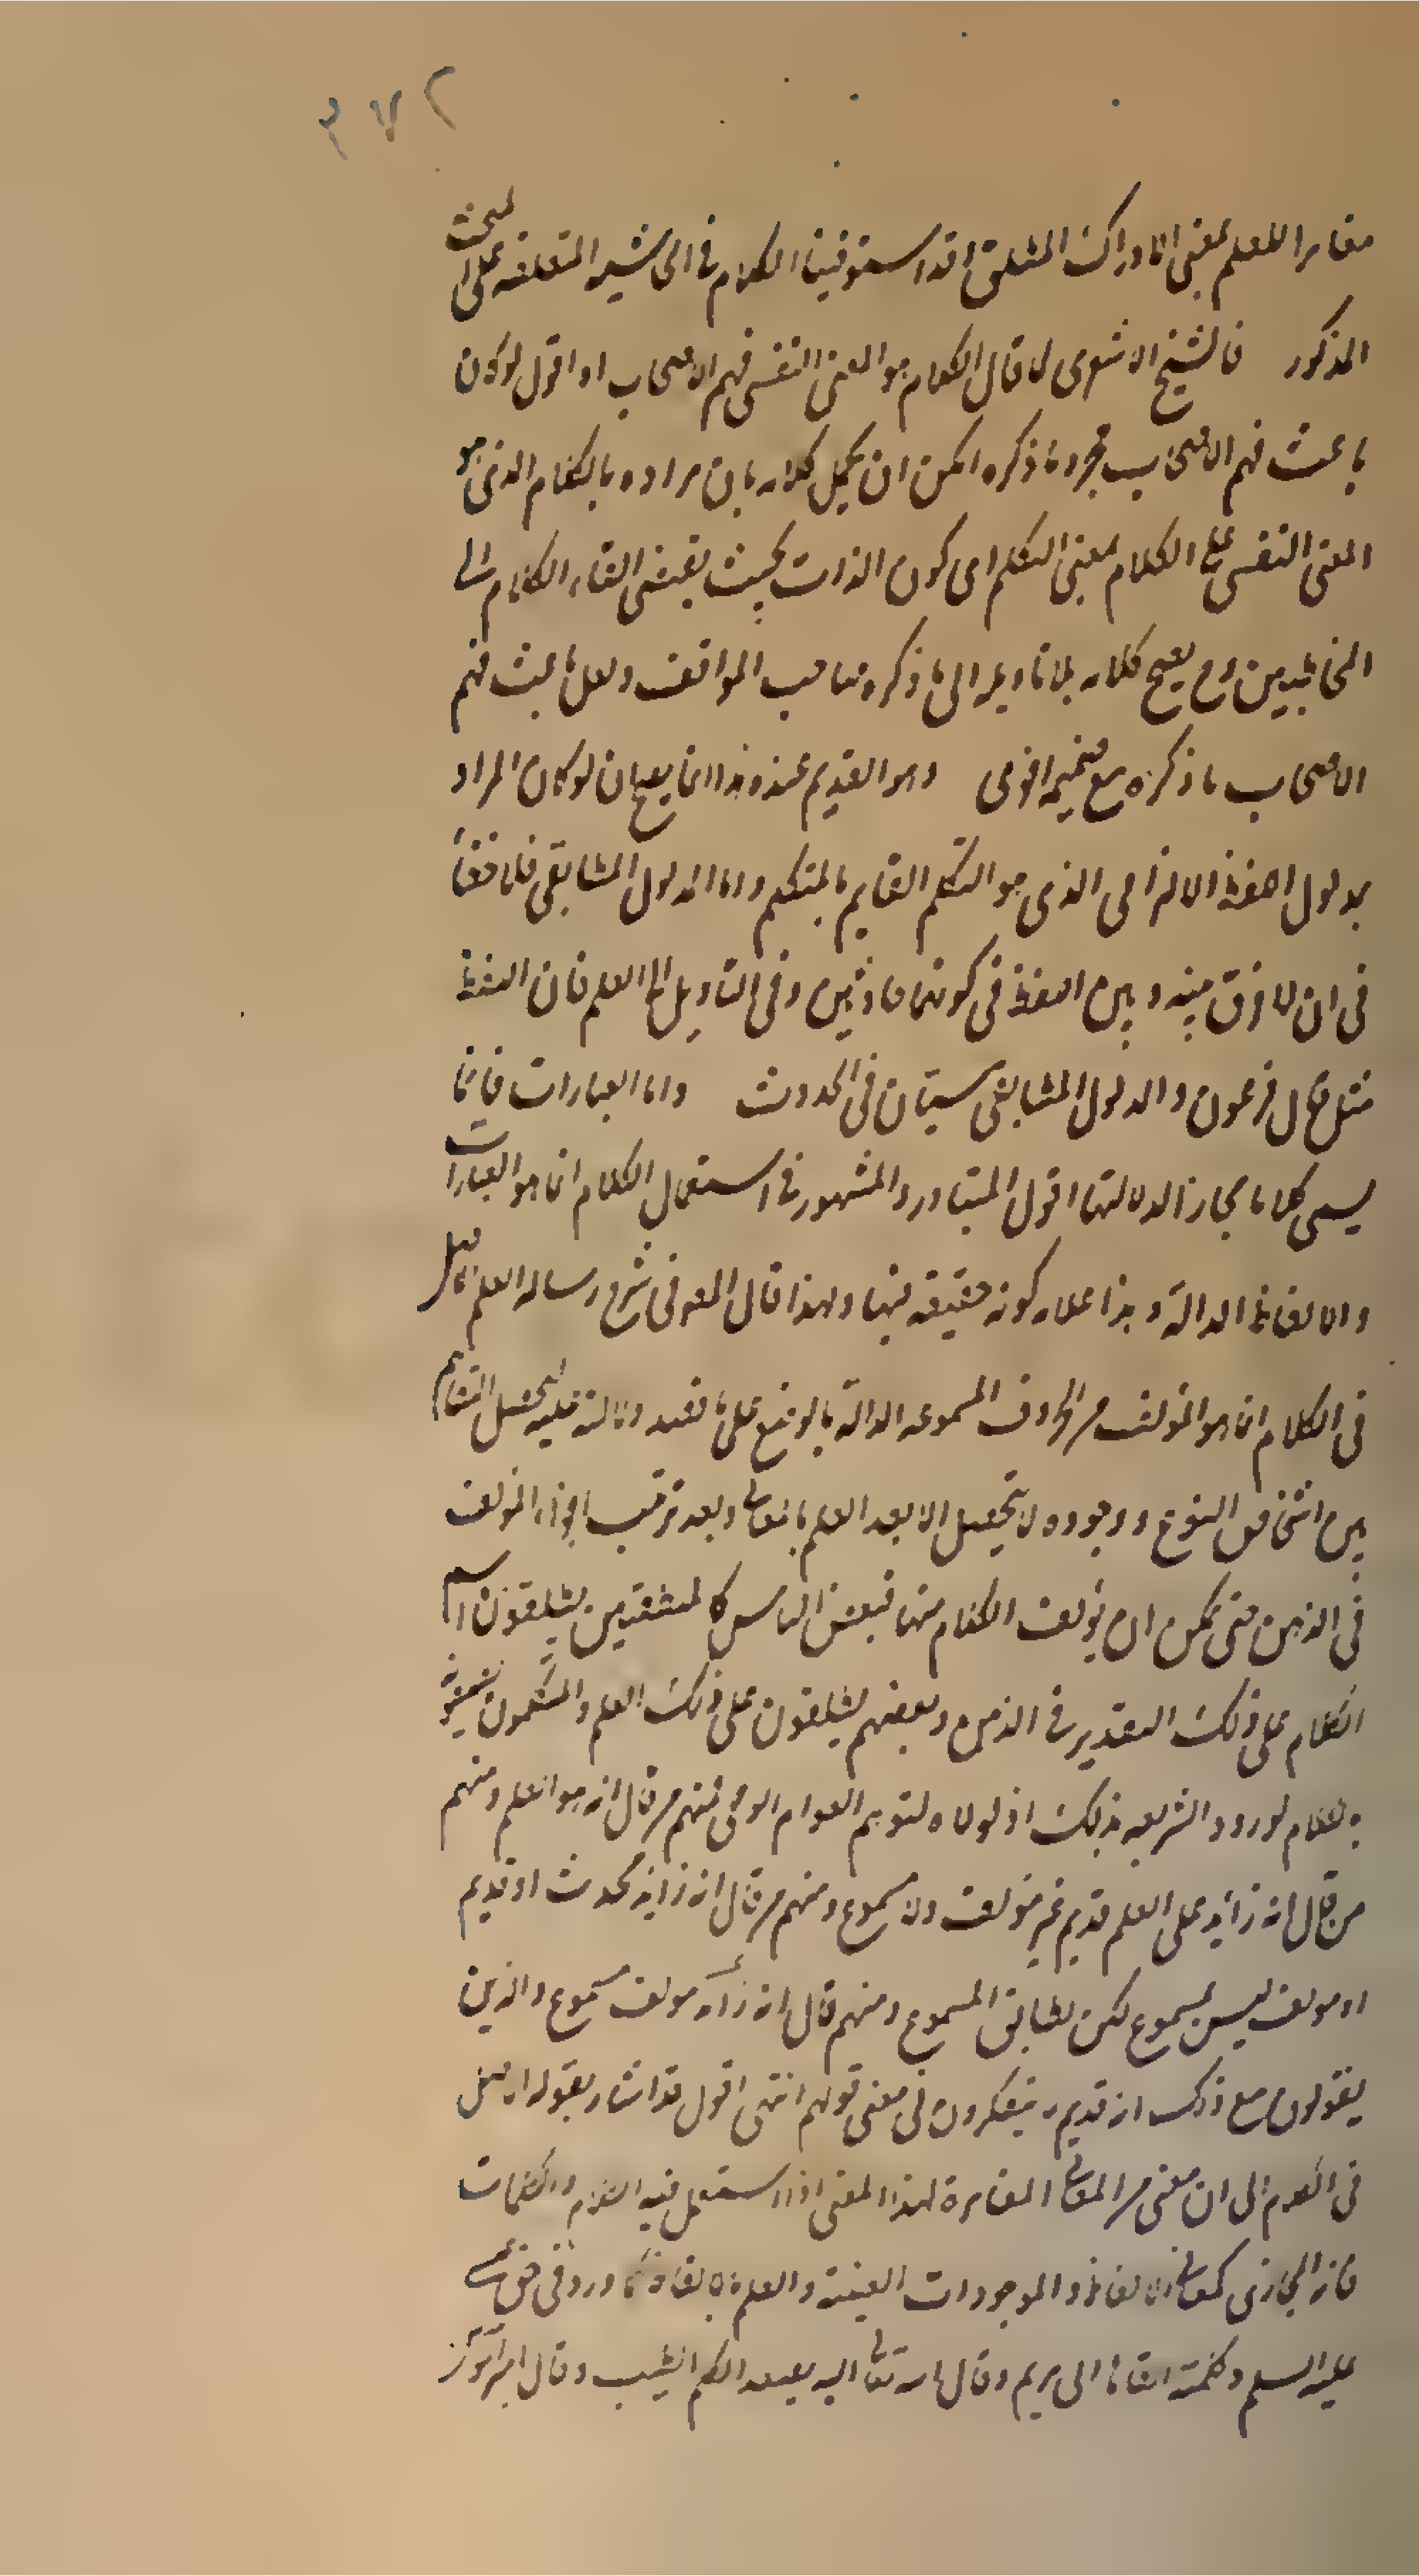 ٣٧٢
مغايرا للعلم بمعنى الادراك المطلق وقد استوفينا الكلام فى الحاشية المتعلقة على المبحث
المذكور فالشيخ الاشعرى لما قال الكلام هو المعنى النفسى فهم الاصحاب اه اقول لو كان
باعث فهم الاصحاب مجرد ما ذكره امكن ان يحمل كلامه بان مراده بالكلام الذى هو
المعنى النفسى على الكلام بمعنى التكلم اى كون الذات بحيث يقتضى القاء الكلام الى
المخاطبين وح يصح كلامه بلا تاويله الى ما ذكره صاحب المواقف ولعل باعث فهم
الاصحاب ما ذكره مع ضميمة اخرى وهو القديم عنده هذا انما يصح ان لو كان المراد
مدلول اللفظ الالتزامى الذى هو التكلم القايم بالمتكلم واما المدلول المطابقى فلا خفاء
فى ان لا فرق بينه وبين اللفظ فى كونهما حادثين وفى التاويل الى العلم فان اللفظ
مثل قال فرعون والمدلول المطابقى سيان فى الحدوث واما العبارات فانما
يسمى كلاما مجازا لدلالتها اقول المتبادر والمشهور فى استعمال الكلام انما هو العبارات
والالفاظ الدالة وهذا علامة كونه حقيقة فيها ولهذا قال المص فى شرح رسالة العلم الاصل
فى الكلام انما هو المؤلف من الحروف المسموعة الدالة بالوضع على ما قصد دلالته عليه ليحصل التفاهم
بين اشخاص النوع ووجوده لا يتحصل الا بعد العلم بالمعانى وبعد ترتيب اجزاء المؤلف
فى الذهن حتى يمكن ان يؤلف الكلام منها فبعض الناس كالمتقدمين يطلقون اسم
الكلام على ذلك التقدير فى الذهن وبعضهم يطلقون على ذلك العلم والمتكلمون يصفونه
بالكلام لورود الشريعة بذلك اذ لولاه لتوهم العوام فمنهم من قال انه هو العلم ومنهم
من قال انه زايد على العلم قديم غير مؤلف ولا مسموع ومنهم من قال انه زايد محدث او قديم
او مولف ليس بمسموع لكن يطابق المسموع ومنهم قال انه زائد مولف مسموع والذين
يقولون مع ذلك انه قديم لا يتفكرون فى معنى قولهم انتهى اقول قد اشار بقوله الاصل
فى الكلام الى ان معنى من المعانى المغايرة لهذا المعنى اذا استعمل فيه الكلام والكلمات
فانه المجازى كمعانى الالفاظ والموجودات العينية والعلم بالفاظ كما ورد فى حق عيسى
عليه السلم وكلمته القاها الى مريم وقال الله تعالى اليه يصعد الكلم الطيب وقال